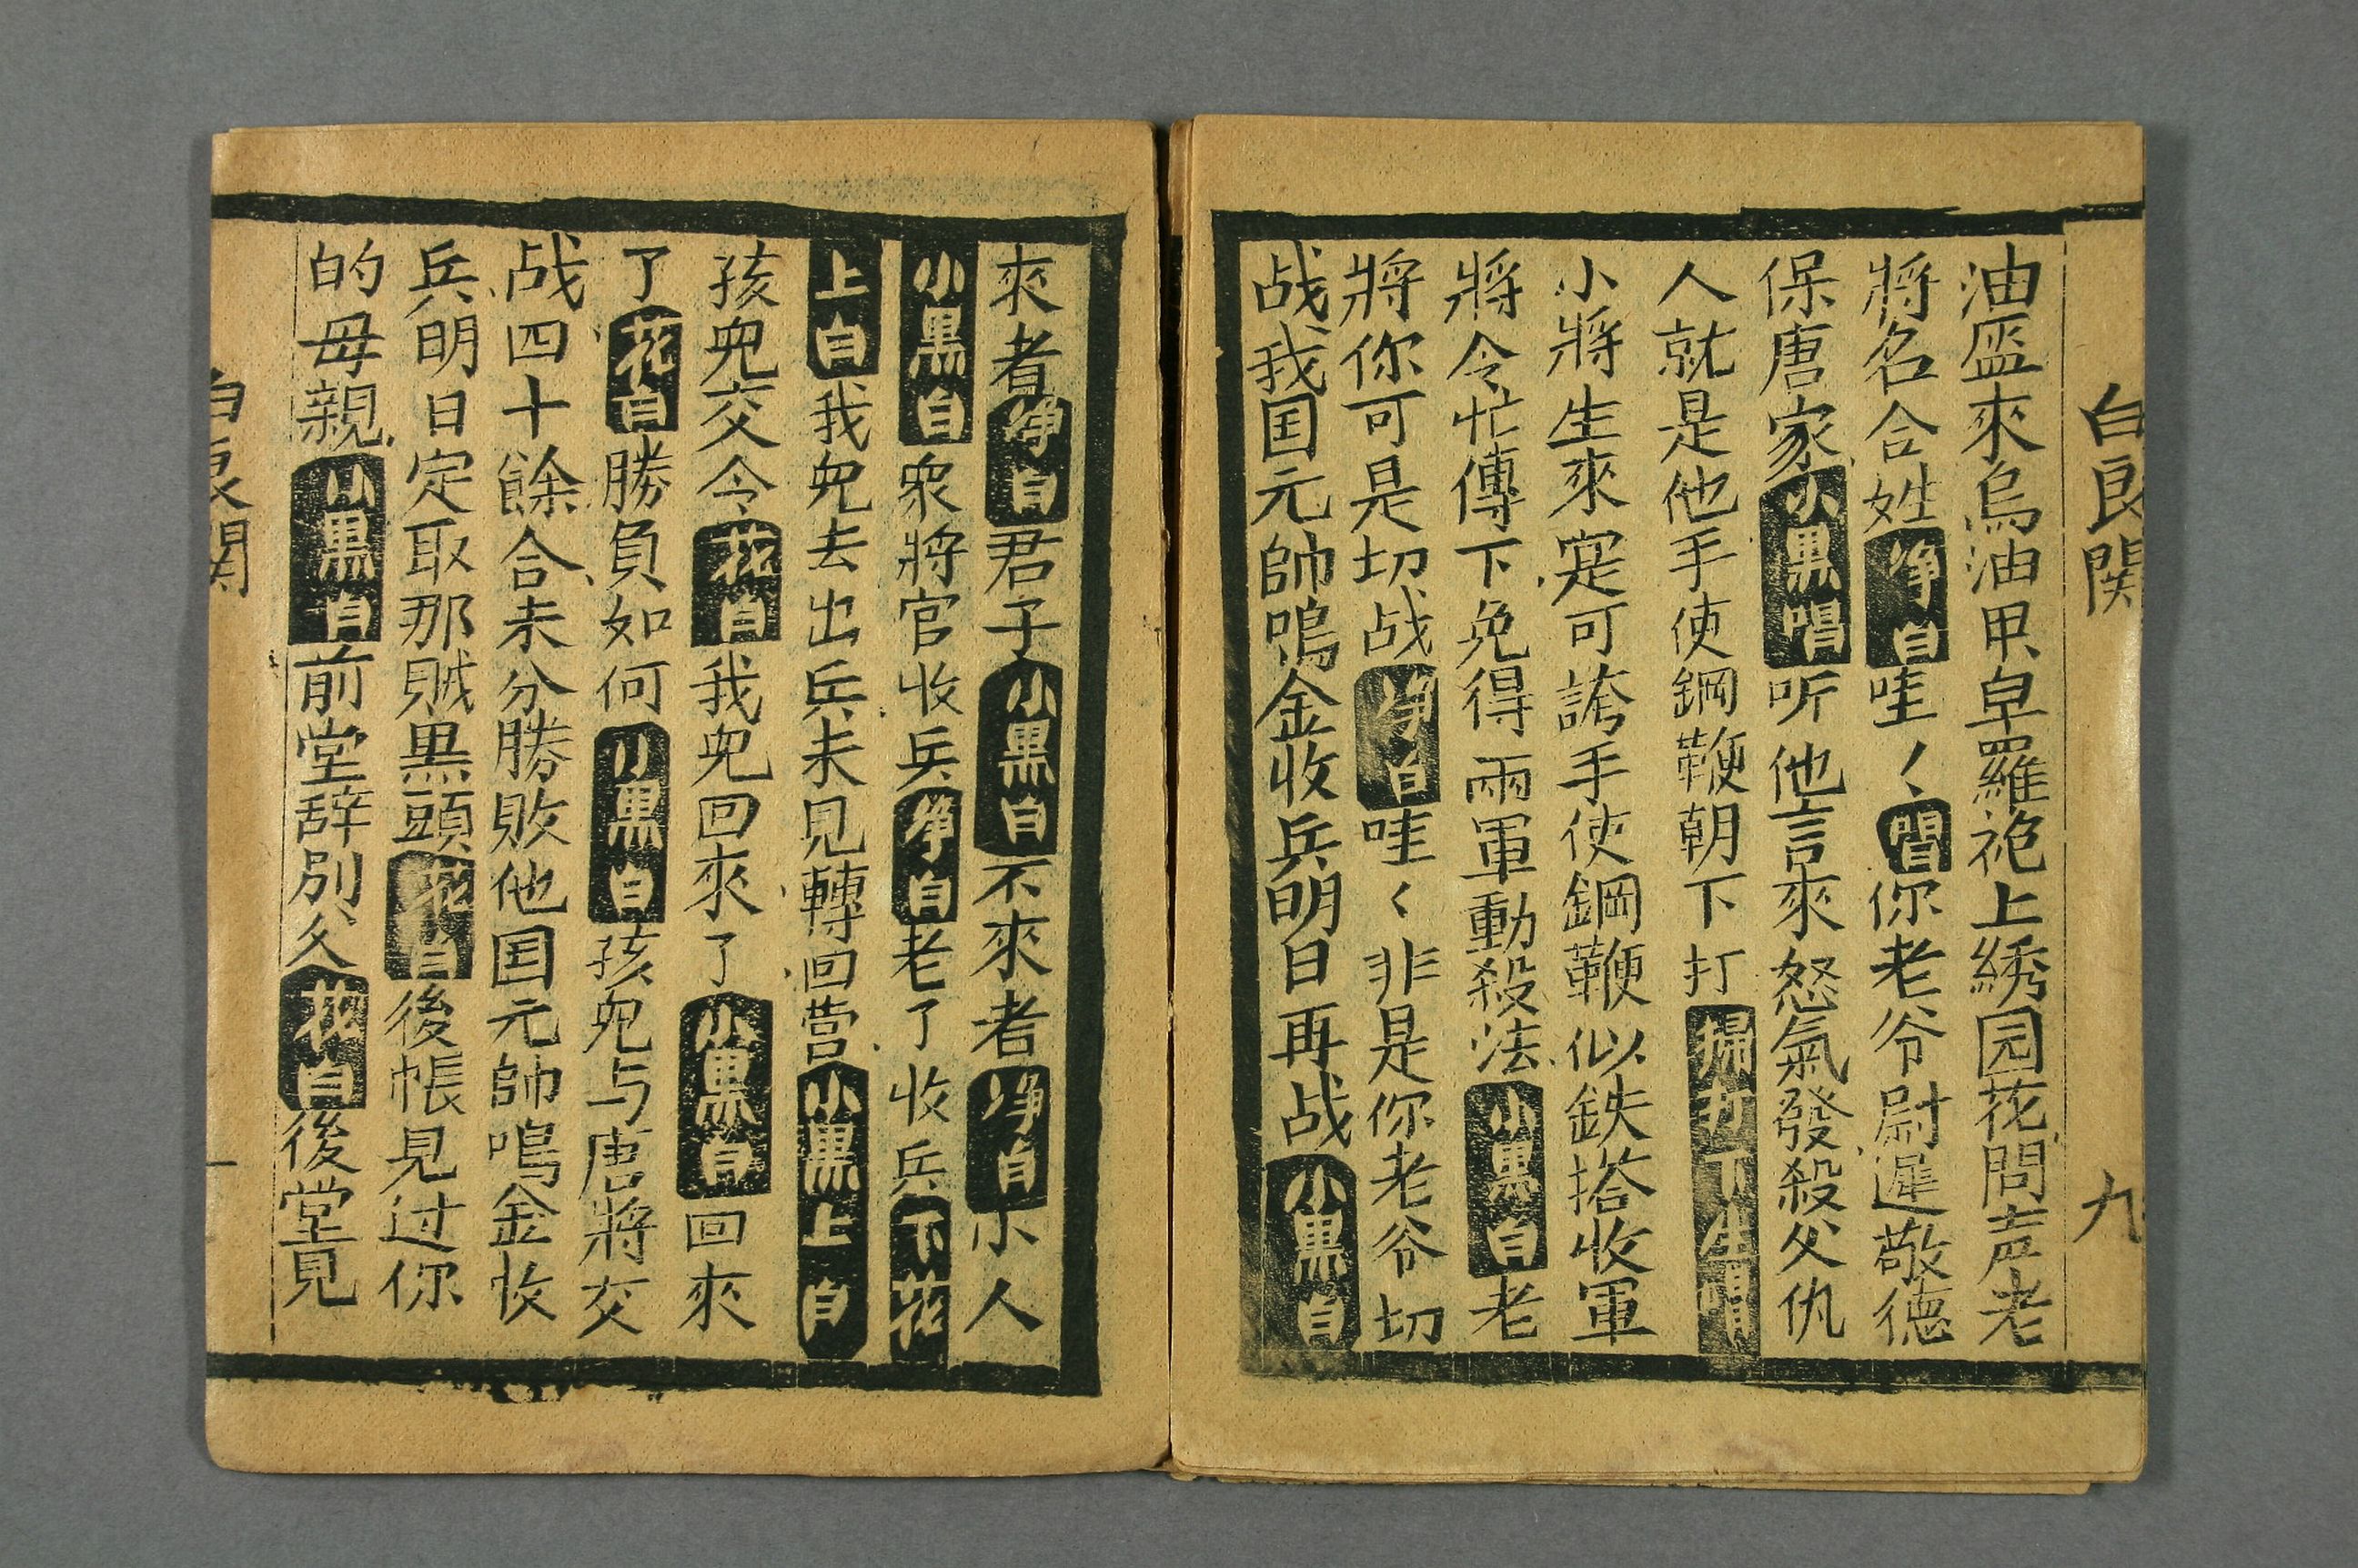 白良関 九
油盔來烏油甲皁羅袍上綉园花問声老
將名合姓净白哇〱唱你老爷尉遲敬德
保唐家小黑唱听他言來怒氣發殺父仇
人就是他手使鋼鞭朝下打掃打下生唱
小將生來寔可誇手使鋼鞭似鉄搭收軍
將令忙傳下免得兩軍動殺法小黑白老
將你可是切战净白哇〱非是你老爷切
战我国元帥鳴金收兵明日再战小黑白
來者净白君子小黑白不來者净白小人
小黑白衆將官收兵净白老了收兵下花
上白我児去出兵未見轉回营小黑上白
孩児交令花白我児回來了小黑白回來
了花白勝負如何小黑白孩児与唐將交
战四十餘合未分勝敗他国元帥鳴金收
兵明日定取那賊黒頭花白後帳見过你
的母親小黑白前堂辞別父花白後堂見
白良関